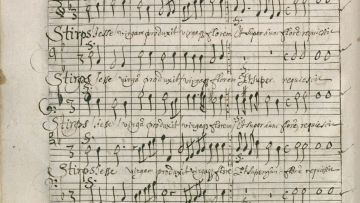 Stirps Iesse virgam produxit virgaqȝ florem Et super hunc florē requiescit
Stirps Iesse virgā produxit virgaqȝ florem Et super requiescit
Stirps Iesse virgā produxit virgaqȝ florem Et super hunc florē requiescit
Stirps Iesse virgam produxit virgaqȝ florem Et super hunc florē requiescit